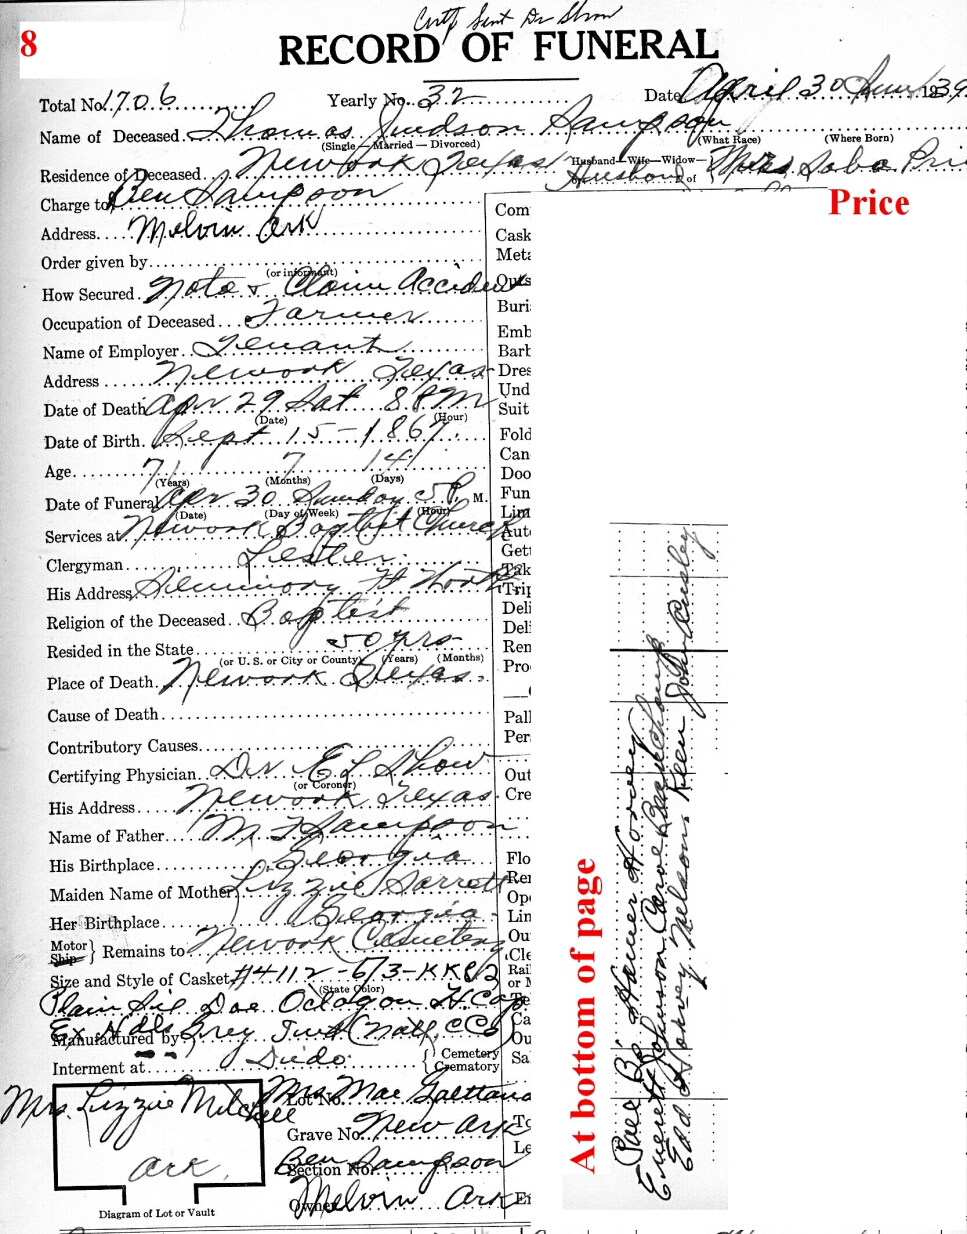 8
Certf Sent Dr Shaw
RECORD OF FUNERAL
Total No. 1706 Yearly No. 32 Date April 30 Sun 1939
Name of Deceased Thomas Judson Sampson
(Single — Married — Divorced) (What Race) (Where Born)
Residence of Deceased Newark Texas Husband—Wife—Widow— Husband of Mrs
Charge to Ben Sampson
Price
Address Melvin Ark
Com
Order given by
Cask
Meta
(or informant)
How Secured Note & Claim Accident
Outs
Occupation of Deceased Farmer
Buri
Name of Employer Tenant
Emb
Barb
Address Newark Texas
Dres
Und
Date of Death Apr 29 Sat 8 P M
Suit
(Date) (Hour)
Date of Birth Sept 15 - 1867
Fold
Can
Age 71 7 14
Doo
(Years) (Months) (Days)
Fun
Date of Funeral Apr 30 Sunday 5 P. M.
Lim
(Date) (Day of Week) (Hour)
Services at Newark Baptist Church
Auto
Gett
Clergyman Lester
Tak
His Address Seminary Ft Worth
Trip
Deli
Religion of the Deceased Baptist
Deli
Resided in the State 50 yrs
Rem
(or U. S. or City or County) (Years) (Months)
Pro
Place of Death Newark Texas
Cause of Death
Pall
Per
Contributory Causes
Certifying Physician Dr E L Shaw
Out
(or Coroner)
His Address Newark Texas
Cre
Name of Father M T Sampson
His Birthplace Georgia
Flo
Maiden Name of Mother Lizzie Garrett
Ren
Ope
Her Birthplace Georgia
Lin
Motor Ship Remains to Newark Cemetery
Ou
Cle
Size and Style of Casket #4112 - 6/3 - KK82
Rail
(State Color)
Plain Sil Doe Octagon H Cap
Ex Hdls Grey Twt Natl CCo
Manufactured by
Ca
Ou
Interment at Dido Cemetery Crematory
Sa
Mrs. Lizzie Mitchell
Ark.
Lot No. Mrs Mae
Grave No. New Ark
Section No. Ben Sampson
Owner Melvin Ark
Diagram of Lot or Vault
At bottom of page
Pall Br Homer Harvey
Everett Johnson
Edd Harvey Nelson Keen John Ausley